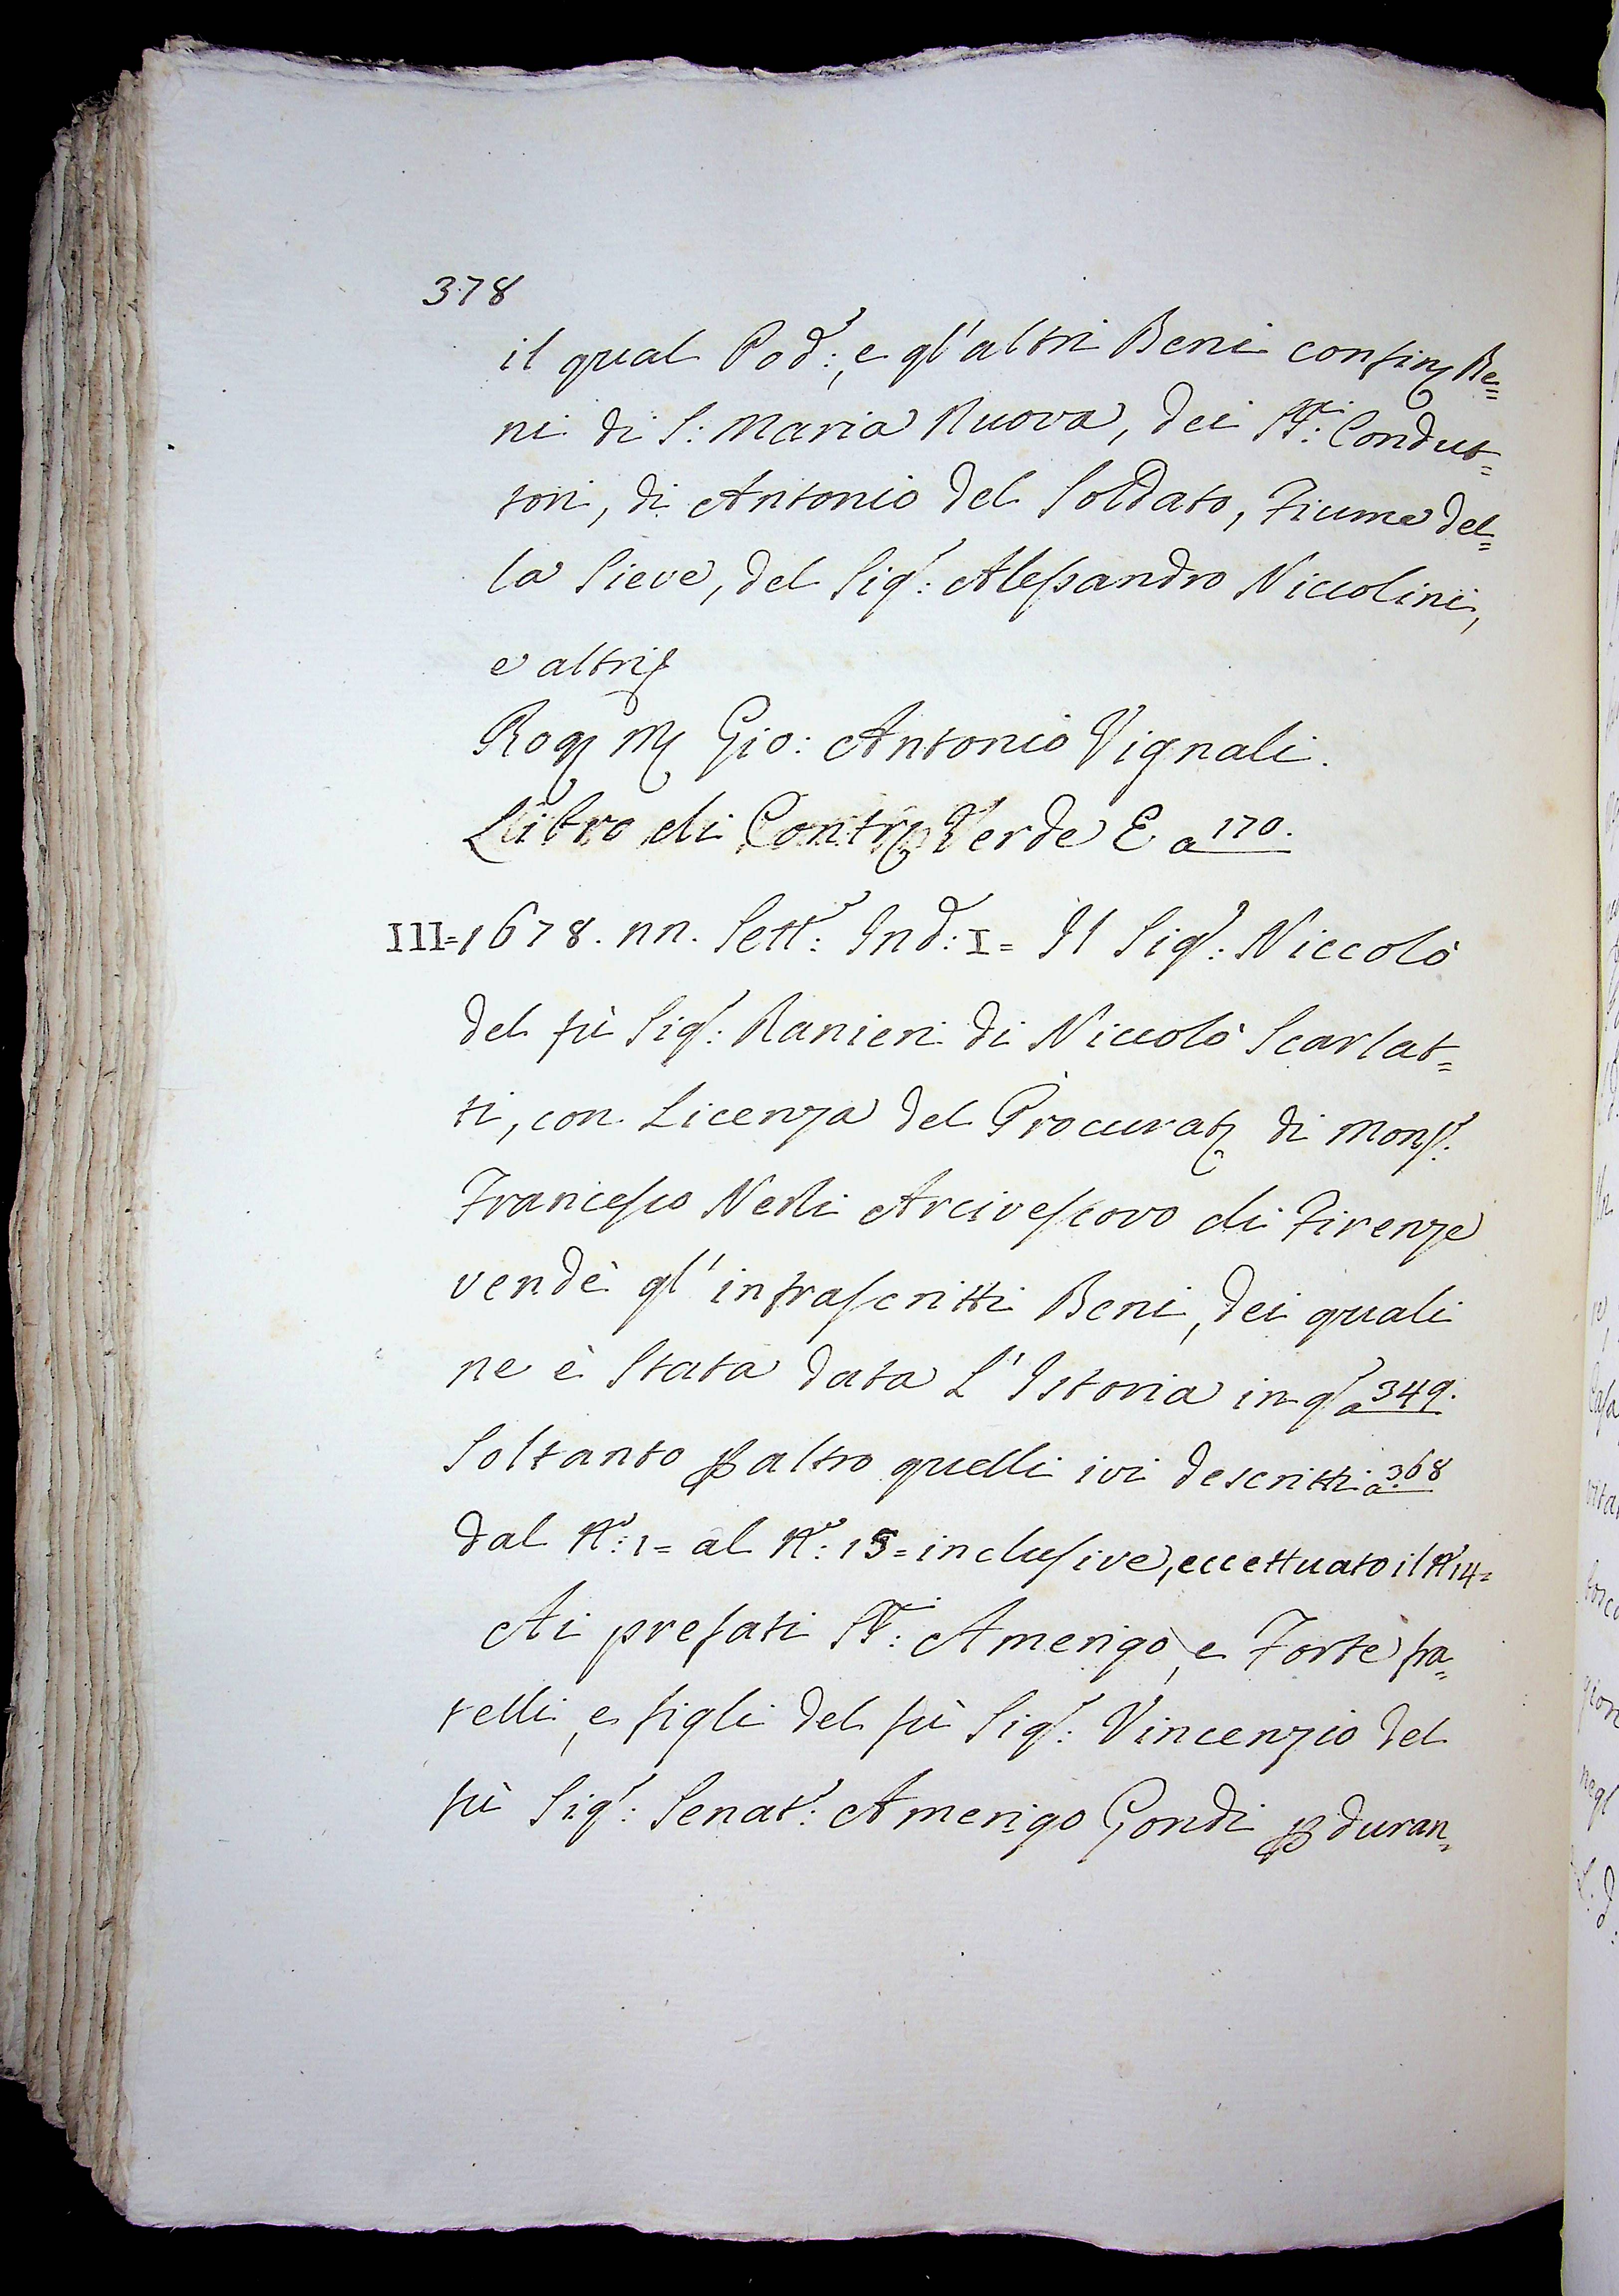 378
il qual Pod.e: e gl'altri Beni confin: Be=
ni di S: Maria Nuova, dei SS.ri: Condut=
tori, di Antonio del Soldato, Fiume del=
la Sieve, del Sig.r: Alessandro Niccolini,
e altri
Rog: M: Gio: Antonio Vignali.
Libro di Contr: Verde E a 170.
III= 1678. nn. Sett.e: Ind.e: I= Il Sig.r: Niccolò
del fù Sig.r: Ranieri di Niccolò Scarlat=
ti, con Licenza del Procurat: di Mons.r:
Francesco Nerli Arcivescovo di Firenze
vendè gl'infrascritti Beni, dei quali
ne è stata data L'Istoria in q.o a 349.
Soltanto p altro quelli ivi descritti a 368
dal N.o: 1= al N.o: 15= inclusive, eccettuato il N.o 14=
Ai prefati SS.ri: Amerigo, e Forte fra=
telli, e figli del fù Sig.r: Vincenzio del
fù Sig.r: Senat.r: Amerigo Gondi p duran=